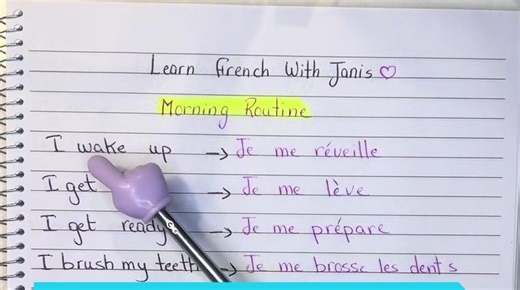 Learn French With Janis
Morning Routine
I wake up → Je me réveille
I get → Je me lève
I get ready → Je me prépare
I brush my teeth → Je me brosse les dents